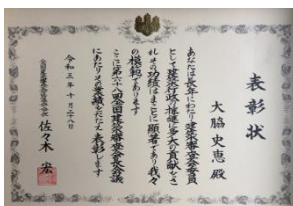 表彰状
大脇史恵 殿
あなたは長年にわたり建築審査会委員
として建築行政の推進に多大の貢献をさ
れその功績はまことに顕著であり我々
の模範であります
ここに第六十八回全国建築審査会長会議
にあたりその業績をたたえ表彰します
令和三年十月二十八日
全国建築審査会協議会会長
佐々木 宏